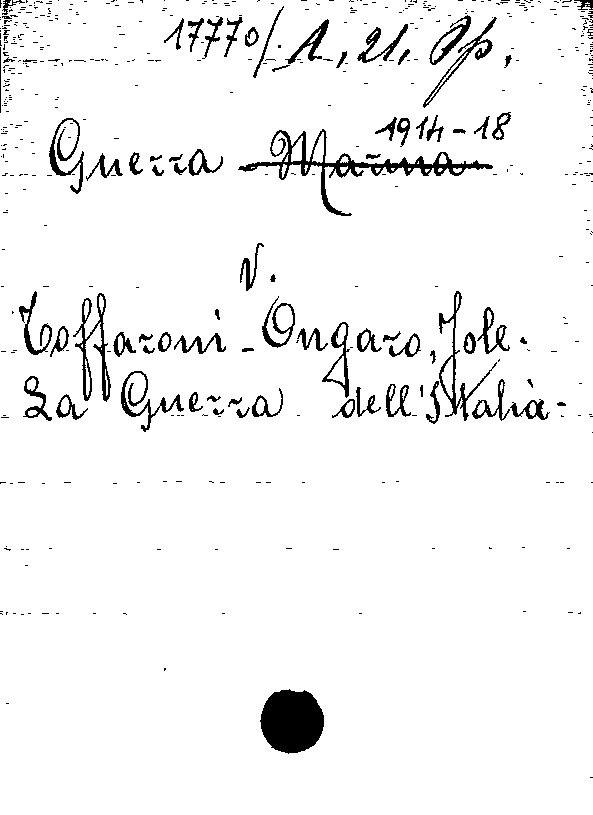 17770/. 1, 21, Op.
1914-18
Guerra - Marina
V.
Toffaroni - Ongaro, Jole.
La Guerra dell'Italia -